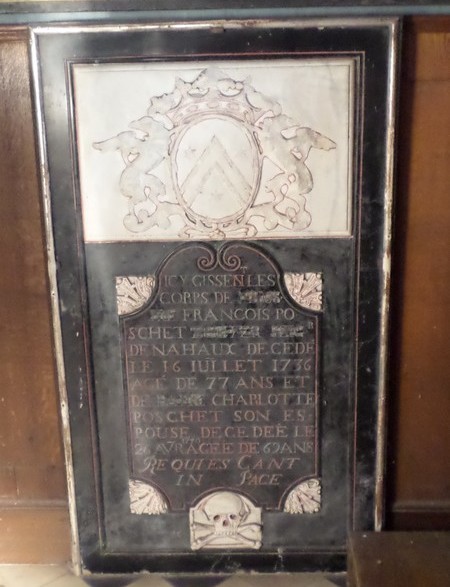 ICY GISSENT LES
CORPS DE
FRANCOIS PO
SCHET
DE NAHAUX DECEDE
LE 16 IUILLET 1736
AGÉ DE 77 ANS ET
DE CHARLOTTE
POSCHET SON ES
POUSE DECEDEÉ LE
26 AGEE DE 69 ANS
REQUIESCANT
IN PACE